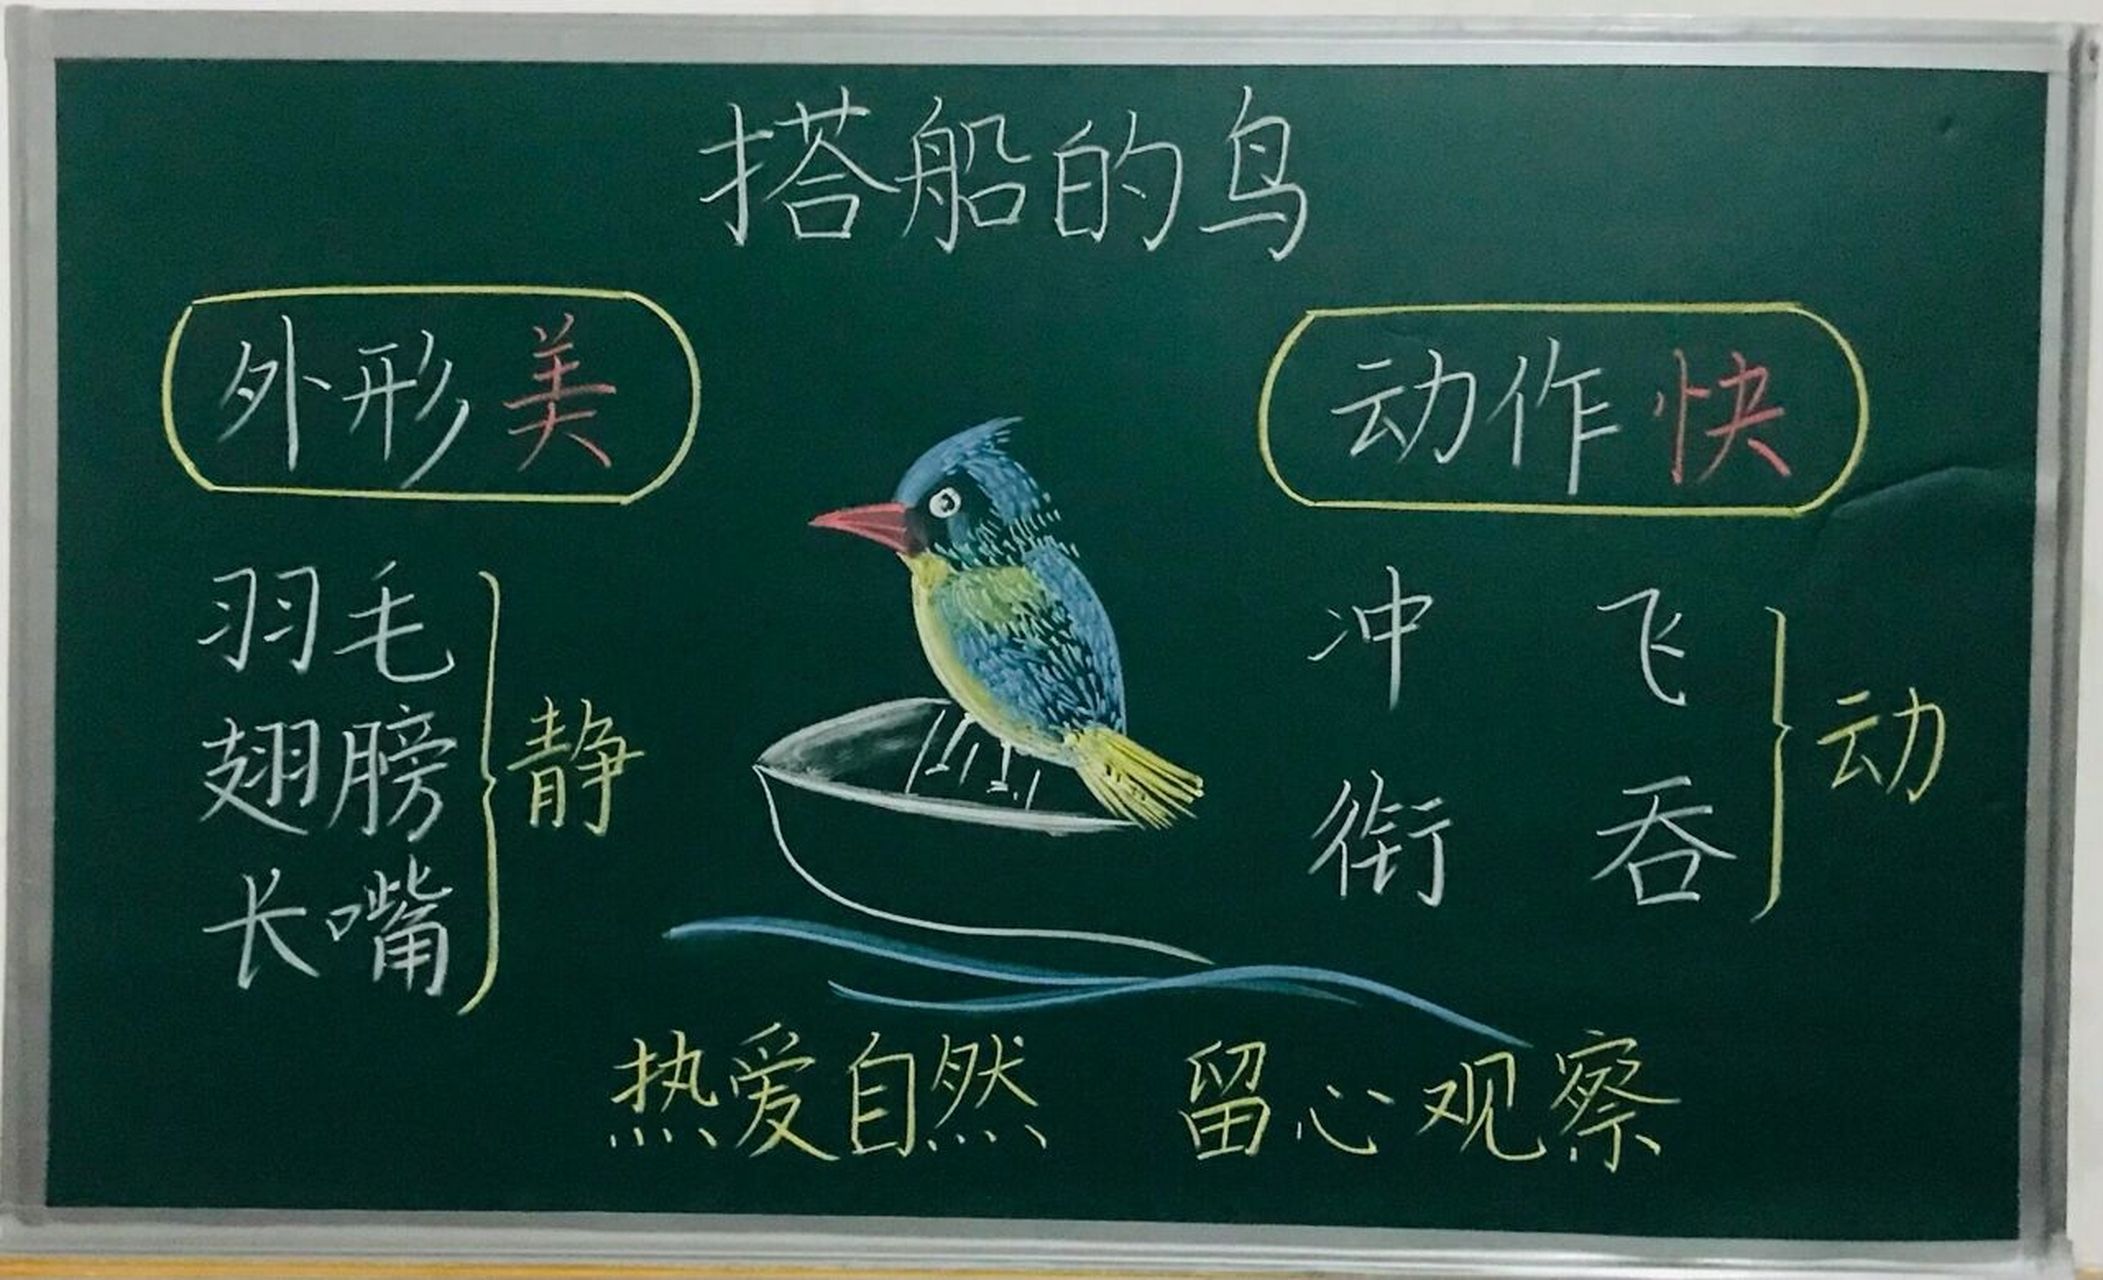 搭船的鸟
外形美
动作快
羽毛
翅膀
长嘴
静
冲 飞
衔 吞
动
热爱自然 留心观察